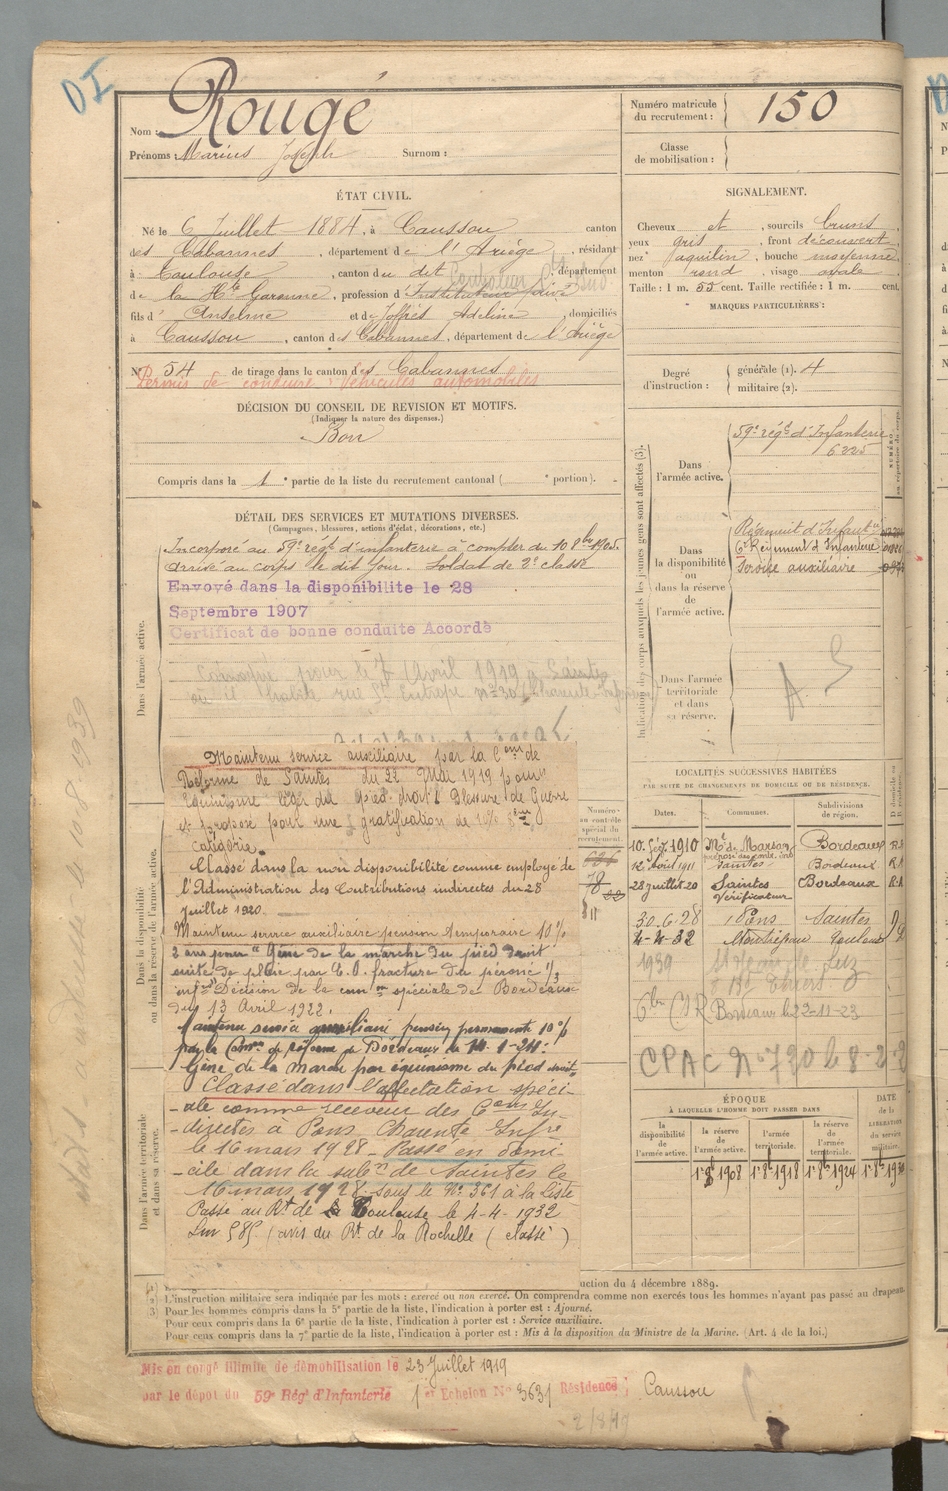 DI
Nom : Rougé
Prénoms : Marius Joseph Surnom :
Numéro matricule du recrutement : 150
Classe de mobilisation :
ÉTAT CIVIL.
Né le 6 Juillet 1884, à Caussou canton
des Cabannes, département de l'Ariége, résidant
à Toulouse, canton du dit département
de la Hte Garonne, profession d'Instituteur privé
fils d' Anselme et de Joffrès Adeline, domiciliés
à Caussou, canton des Cabannes, département de l'Ariège
N° 54 de tirage dans le canton des Cabannes
Permis de conduire : véhicules automobiles
DÉCISION DU CONSEIL DE REVISION ET MOTIFS.
(Indiquer la nature des dispenses.)
Bon
Compris dans la 1e partie de la liste du recrutement cantonal ( e portion).
SIGNALEMENT.
Cheveux et, sourcils bruns
yeux gris, front découvert
nez aquilin, bouche moyenne
menton rond, visage ovale
Taille : 1 m. 55 cent. Taille rectifiée : 1 m. cent.
MARQUES PARTICULIÈRES :
Degré d'instruction : générale (1). 4
militaire (2).
DÉTAIL DES SERVICES ET MUTATIONS DIVERSES.
(Campagnes, blessures, actions d'éclat, décorations, etc.)
Dans l'armée active.
Incorporé au 59e régt d'infanterie à compter du 10 8bre 1905.
Arrivé au corps le dit jour. Soldat de 2e classe
Envoyé dans la disponibilite le 28
Septembre 1907
Certificat de bonne conduite Accordé
pour le 7 Avril 1919 à Saintes
Dans la disponibilité ou dans la réserve de l'armée active.
Maintenu service auxiliaire par la Con de
Réforme de Saintes du 22 Mai 1919 pour
Equinisme léger du pied droit Blessure de Guerre
et proposé pour une gratification de 10% 8eme
catégorie.
Classé dans la non disponibilité comme employé de
l'Administration des Contributions indirectes du 28
Juillet 1920.
Maintenu service auxiliaire pension temporaire 10%
2 ans pour "Gêne de la marche du pied droit
suite de plaie par E.O. fracture du péroné 1/3
infer Décision de la comon spéciale de Bordeaux
du 13 Avril 1922.
Maintenu service auxiliaire pension permanente 10%
par la Comon de réforme de Bordeaux le 14-1-24:
Gêne de la marche par équinisme du pied droit
Dans l'armée territoriale et dans sa réserve.
Classé dans l'affectation spéci-
-ale comme receveur des Cons In-
-directes à Pons Charente Infre
le 16 mars 1928. Passé en domi-
-cile dans la subon de Saintes le
16 mars 1928 sous le No 361 à la liste
Passé au Rt de Toulouse le 4-4-1932
(avis du Rt de la Rochelle (classé)
Indication des corps auxquels les jeunes gens sont affectés (3).
Dans l'armée active.
59e régt d'Infanterie
6225
Dans la disponibilité ou dans la réserve de l'armée active.
Régiment d'Infantie
6e Régiment d'Infanterie
Service auxiliaire
Dans l'armée territoriale et dans sa réserve.
LOCALITÉS SUCCESSIVES HABITÉES
PAR SUITE DE CHANGEMENTS DE DOMICILE OU DE RÉSIDENCE.
Dates. Communes. Subdivisions de région.
10 1910 Mt de Marsan Bordeaux R.
12 Août 1911 Saintes Bordeaux R.A
28 Juillet 20 Saintes Vérificateur Bordeaux R.A
30.6.28 Pons Saintes D
4-4-32 Toulouse D
1939
Bordeaux le 22-11-23
CPAC N° 790
Numéro au contrôle spécial du recrutement.
ÉPOQUE
À LAQUELLE L'HOMME DOIT PASSER DANS
la disponibilité de l'armée active. la réserve de l'armée active. l'armée territoriale. la réserve de l'armée territoriale.
DATE de la LIBÉRATION du service militaire.
1er 8bre 1908 1er 8bre 1918 1er 8bre 1924 1er 8bre 193
uction du 4 décembre 1889.
(2) L'instruction militaire sera indiquée par les mots : exercé ou non exercé. On comprendra comme non exercés tous les hommes n'ayant pas passé au drapeau.
3) Pour les hommes compris dans la 5e partie de la liste, l'indication à porter est : Ajourné.
Pour ceux compris dans la 6e partie de la liste, l'indication à porter est : Service auxiliaire.
Pour ceux compris dans la 7e partie de la liste, l'indication à porter est : Mis à la disposition du Ministre de la Marine. (Art. 4 de la loi.)
Mis en congé illimité de démobilisation le 23 Juillet 1919
par le dépôt du 59e Régt d'Infanterie 1er Echelon No 3631 Résidence : Caussou
2/8/19